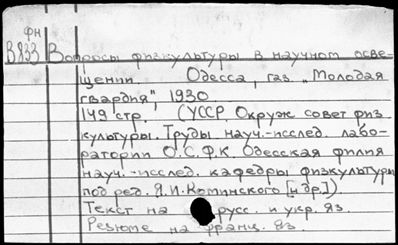 фн
В833 Вопросы физкультуры в научном осве-
щении. Одесса, газ. „Молодая
гвардия", 1930
149 стр. (УССР. Окруж совет физ
культуры. Труды науч.-исслед. лабо-
ратории О.С.Ф.К. Одесская филия
науч.-исслед. кафедры физкультуры
под ред. Я.И.Коминского [и др.]).
Текст на русс. и укр. яз.
Резюме на франц. яз.